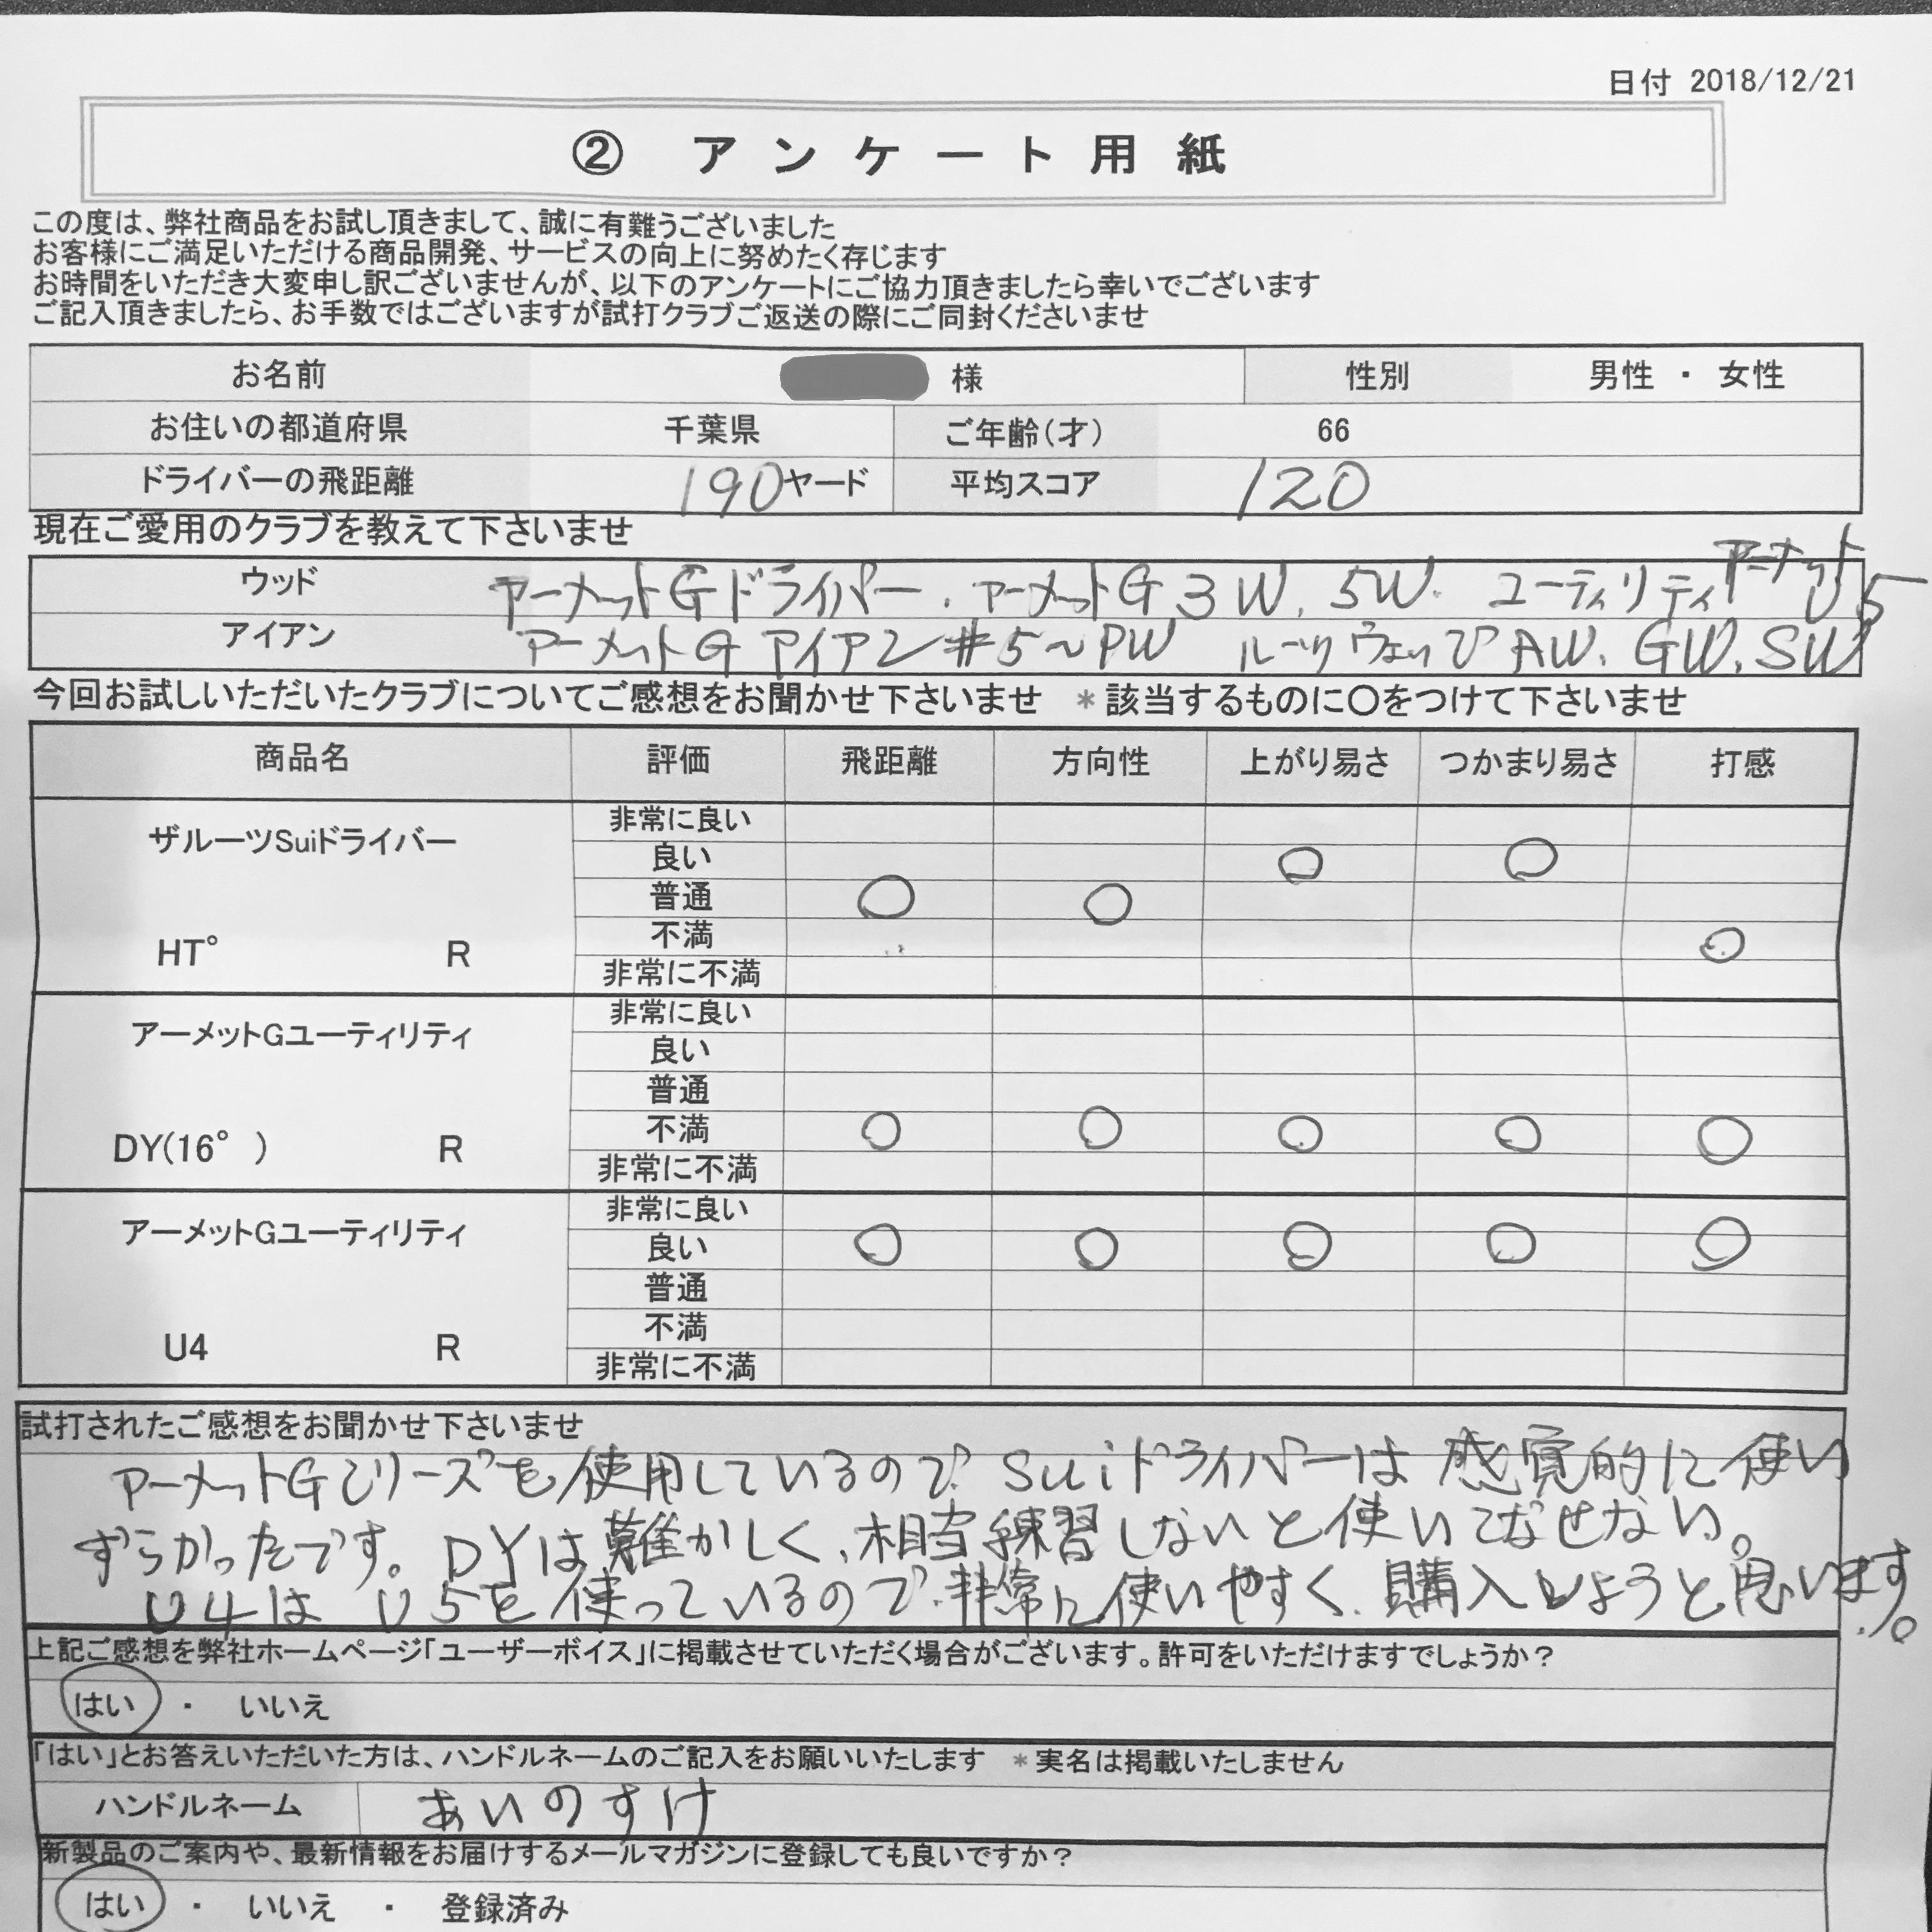 日付 2018/12/21
② アンケート用紙
この度は、弊社商品をお試し頂きまして、誠に有難うございました
お客様にご満足いただける商品開発、サービスの向上に努めたく存じます
お時間をいただき大変申し訳ございませんが、以下のアンケートにご協力頂きましたら幸いでございます
ご記入頂きましたら、お手数ではございますが試打クラブご返送の際にご同封くださいませ
お名前 様 性別 男性 ・ 女性
お住いの都道府県 千葉県 ご年齢(才) 66
ドライバーの飛距離 190ヤード 平均スコア 120
現在ご愛用のクラブを教えて下さいませ
ウッド アーメットGドライバー、アーメットG 3W、5W、ユーティリティアーメットU5
アイアン アーメットGアイアン#5~PW ルーツウェッヂAW、GW、SW
今回お試しいただいたクラブについてご感想をお聞かせ下さいませ *該当するものに〇をつけて下さいませ
商品名 評価 飛距離 方向性 上がり易さ つかまり易さ 打感
ザルーツSuiドライバー
HT° R
非常に良い
良い 〇 〇
普通 〇 〇
不満 〇
非常に不満
アーメットGユーティリティ
DY(16°) R
非常に良い
良い
普通
不満 〇 〇 〇 〇 〇
非常に不満
アーメットGユーティリティ
U4 R
非常に良い
良い 〇 〇 〇 〇 〇
普通
不満
非常に不満
試打されたご感想をお聞かせ下さいませ
アーメットGシリーズを使用しているので、Suiドライバーは感覚的に使い
ずらかったです。DYは難かしく、相当練習しないと使いこなせない。
U4はU5を使っているので、非常に使いやすく、購入しようと思います。
上記ご感想を弊社ホームページ「ユーザーボイス」に掲載させていただく場合がございます。許可をいただけますでしょうか?
はい ・ いいえ
「はい」とお答えいただいた方は、ハンドルネームのご記入をお願いいたします *実名は掲載いたしません
ハンドルネーム あいのすけ
新製品のご案内や、最新情報をお届けするメールマガジンに登録しても良いですか?
はい ・ いいえ ・ 登録済み